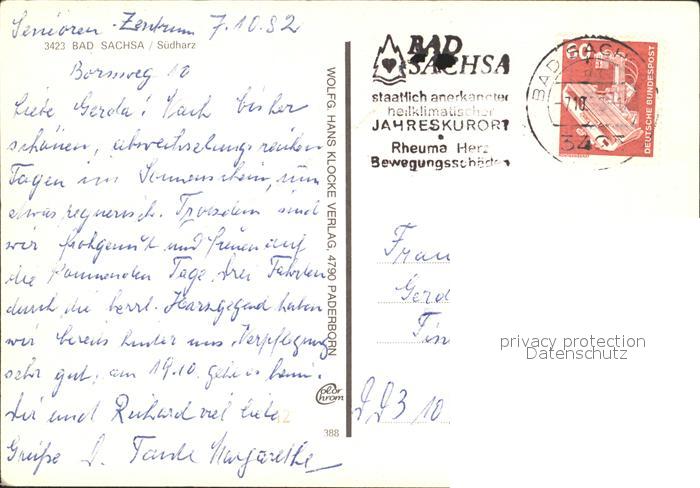 Senioren-Zentrum 7.10.82
3423 BAD SACHSA / Südharz
Bornweg 10
Liebe Gerda! Nach bisher
schönen, abwechselungsreichen
Tagen im Sonnenschein, nun
etwas regnerisch. Trotzdem sind
wir frohgemut und freuen auf
die kommenden Tage. Drei Fahrten
durch die herrl. Harzgegend haben
wir bereits hinter uns. Verpflegung
sehr gut, am 19.10. geht es heim.
Dir und Richard viel liebe
Grüße D. Tante Margarethe
WOLFG. HANS KLOCKE VERLAG, 4790 PADERBORN
color
chrom
388
BAD
SACHSA
staatlich anerkannter
heilklimatischer
JAHRESKURORT
Rheuma Herz
Bewegungsschäden
BAD SACH
-7.10
342
60
DEUTSCHE BUNDESPOST
Frau
Gerd
DD3 10
privacy protection
Datenschutz